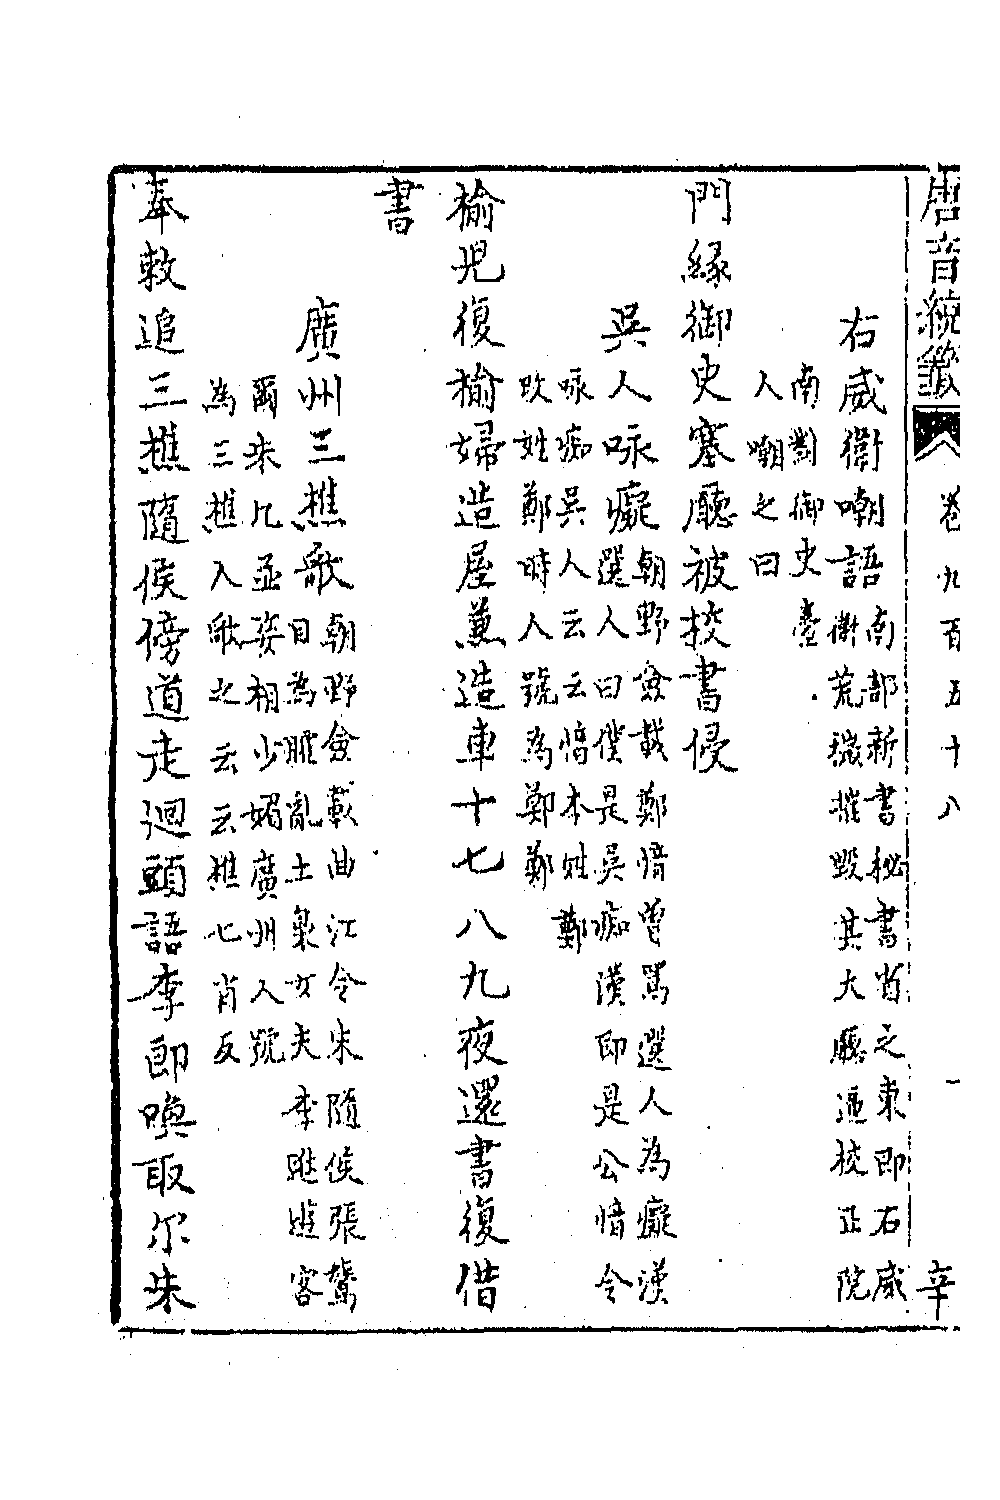 唐音統籤 卷九百五十八 一 辛
右威衛嘲語
南部新書秘書省之東即右威
衛荒穢摧毀其大廳逼校正院
南對御史臺
人嘲之曰
門緣御史塞廳被校書侵
吳人咏癡
朝野僉載鄭愔曾罵選人為癡漢
選人曰僕是吳痴漢即是公愔令
咏痴吳人云云愔本姓鄭
改姓鄭時人號為鄭鄭
榆兒復榆婦造屋兼造車十七八九夜還書復借
書
廣州三樵歌
朝野僉載曲江令朱隨侯張鷟
目為亂土梟女夫李逖遊客
爾朱九並姿相少媚廣州人號
為三樵人歌之云云樵七肖反
奉敕追三樵隨侯傍道走迴頭語李郎喚取尔朱